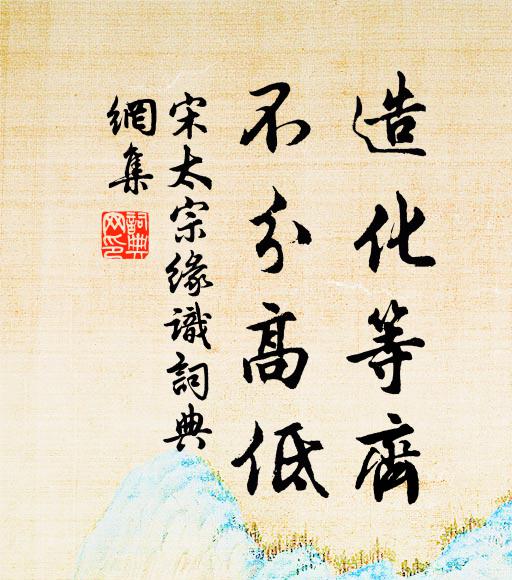 造化等齊
不分高低
宋太宗緣識詞典
網集
詞典網印